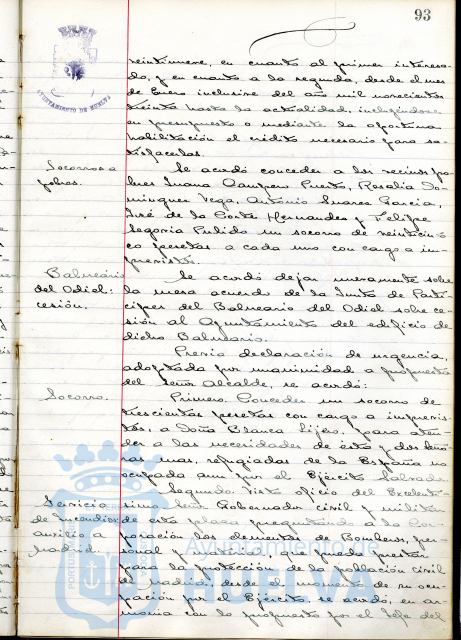 93
AYUNTAMIENTO DE HUELVA
veintinueve, en cuanto al primer interesa-
do, y en cuanto a la segunda, desde el mes
de Enero inclusive del año mil novecientos
treinta hasta la actualidad, incluyéndose
en presupuesto o mediante la oportuna
habilitación el crédito necesario para sa-
tisfacerlas.
Socorros a
pobres.
Se acordó conceder a los vecinos po-
bres Juana Campero Puerto, Rosalia Do-
minguez Vega, Antonio Suarez Garcia,
José de la Corte Hernandez y Felipe
Segovia Pulido un socorro de veinticin-
co pesetas a cada uno con cargo a im-
previstos.
Balneario
del Odiel:
cesión.
Se acordó dejar nuevamente sobre
la mesa acuerdo de la Junta de Parti-
cipes del Balneario del Odiel sobre ce-
sión al Ayuntamiento del edificio de
dicho Balneario.
Previa declaración de urgencia,
adoptada por unanimidad a propuesta
del Señor Alcalde, se acordó:
Socorro.
Primero. Conceder un socorro de
trescientas pesetas con cargo a imprevis-
tos, a Doña Blanca Lijero, para aten-
der a las necesidades de ésta y dos
mas, refugiadas de la España no
ocupada aun por el Ejército Salvador.
Servicio
de incendios:
auxilio a
Madrid.
Segundo. Visto oficio del Excelentí-
simo Señor Gobernador civil y militar
de esta plaza preguntando a la Cor-
poración los elementos de Bomberos, per-
sonal y material que puede prestar
para la protección de la población civil
de Madrid, desde el momento de su ocu-
pación por el Ejército, se acordó, en ar-
monia con lo propuesto por el Jefe del
Ayuntamiento de
HUELVA